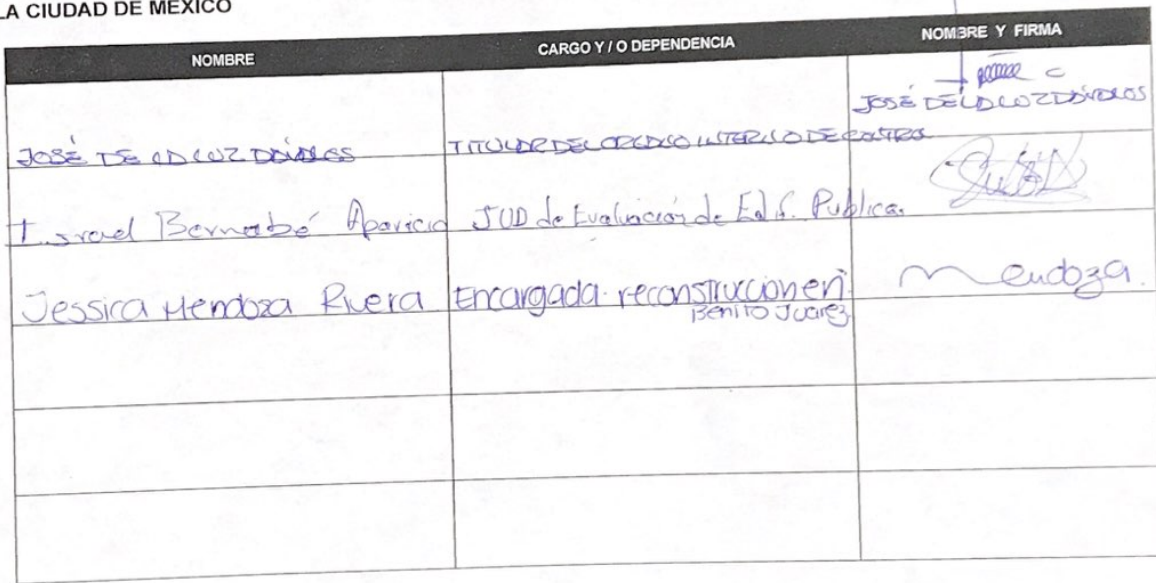 LA CIUDAD DE MÉXICO
NOMBRE CARGO Y / O DEPENDENCIA NOMBRE Y FIRMA
JOSÉ DE LA LUZ DÁVALOS TITULAR DEL ORGANO INTERNO DE CONTROL JOSÉ DE LA LUZ DÁVALOS
Israel Bernabé Aparicio JUD de Evaluación de Edif. Publica.
Jessica Mendoza Rivera Encargada reconstruccion en Mendoza.
Benito Juarez